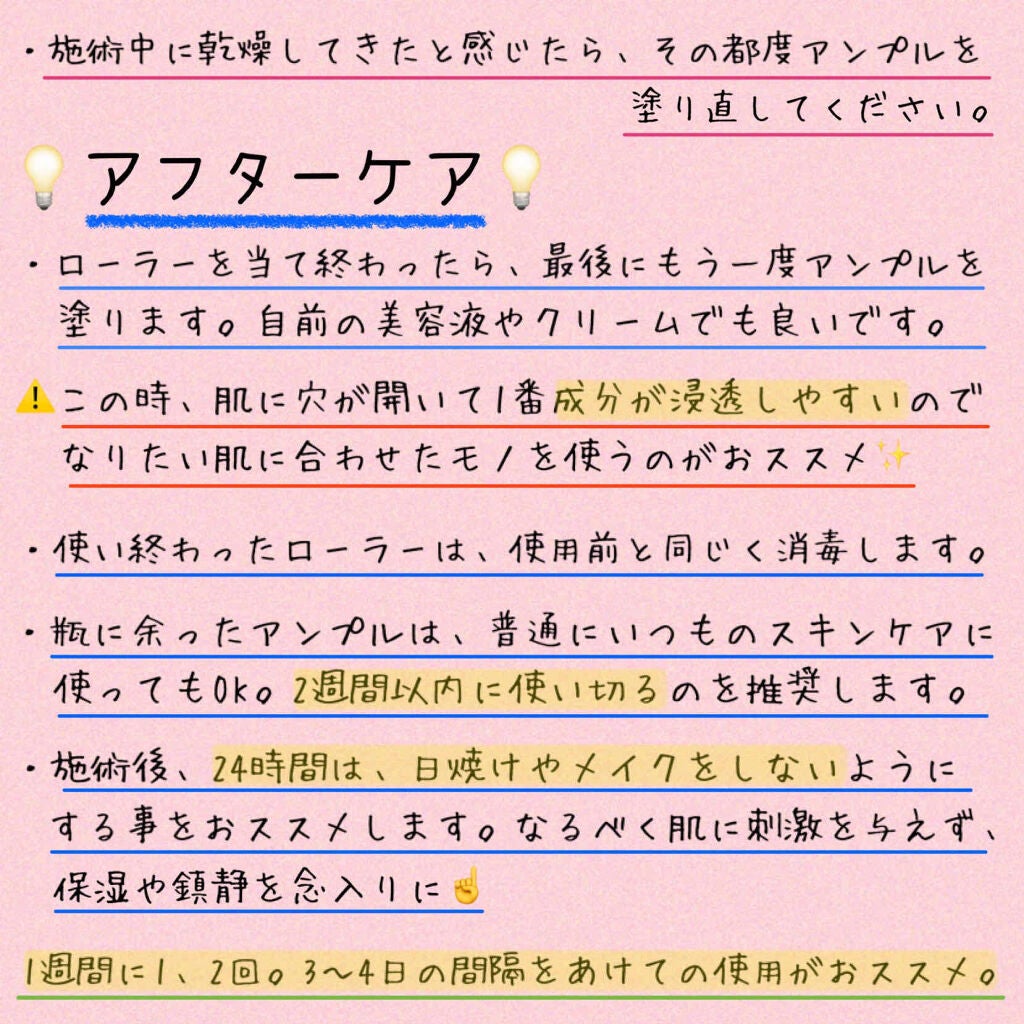 ・施術中に乾燥してきたと感じたら、その都度アンプルを
塗り直してください。
💡アフターケア💡
・ローラーを当て終わったら、最後にもう一度アンプルを
塗ります。自前の美容液やクリームでも良いです。
⚠️この時、肌に穴が開いて1番成分が浸透しやすいので
なりたい肌に合わせたモノを使うのがおススメ✨
・使い終わったローラーは、使用前と同じく消毒します。
・瓶に余ったアンプルは、普通にいつものスキンケアに
使ってもOK。2週間以内に使い切るのを推奨します。
・施術後、24時間は、日焼けやメイクをしないように
する事をおススメします。なるべく肌に刺激を与えず、
保湿や鎮静を念入りに☝️
1週間に1、2回。3〜4日の間隔をあけての使用がおススメ。